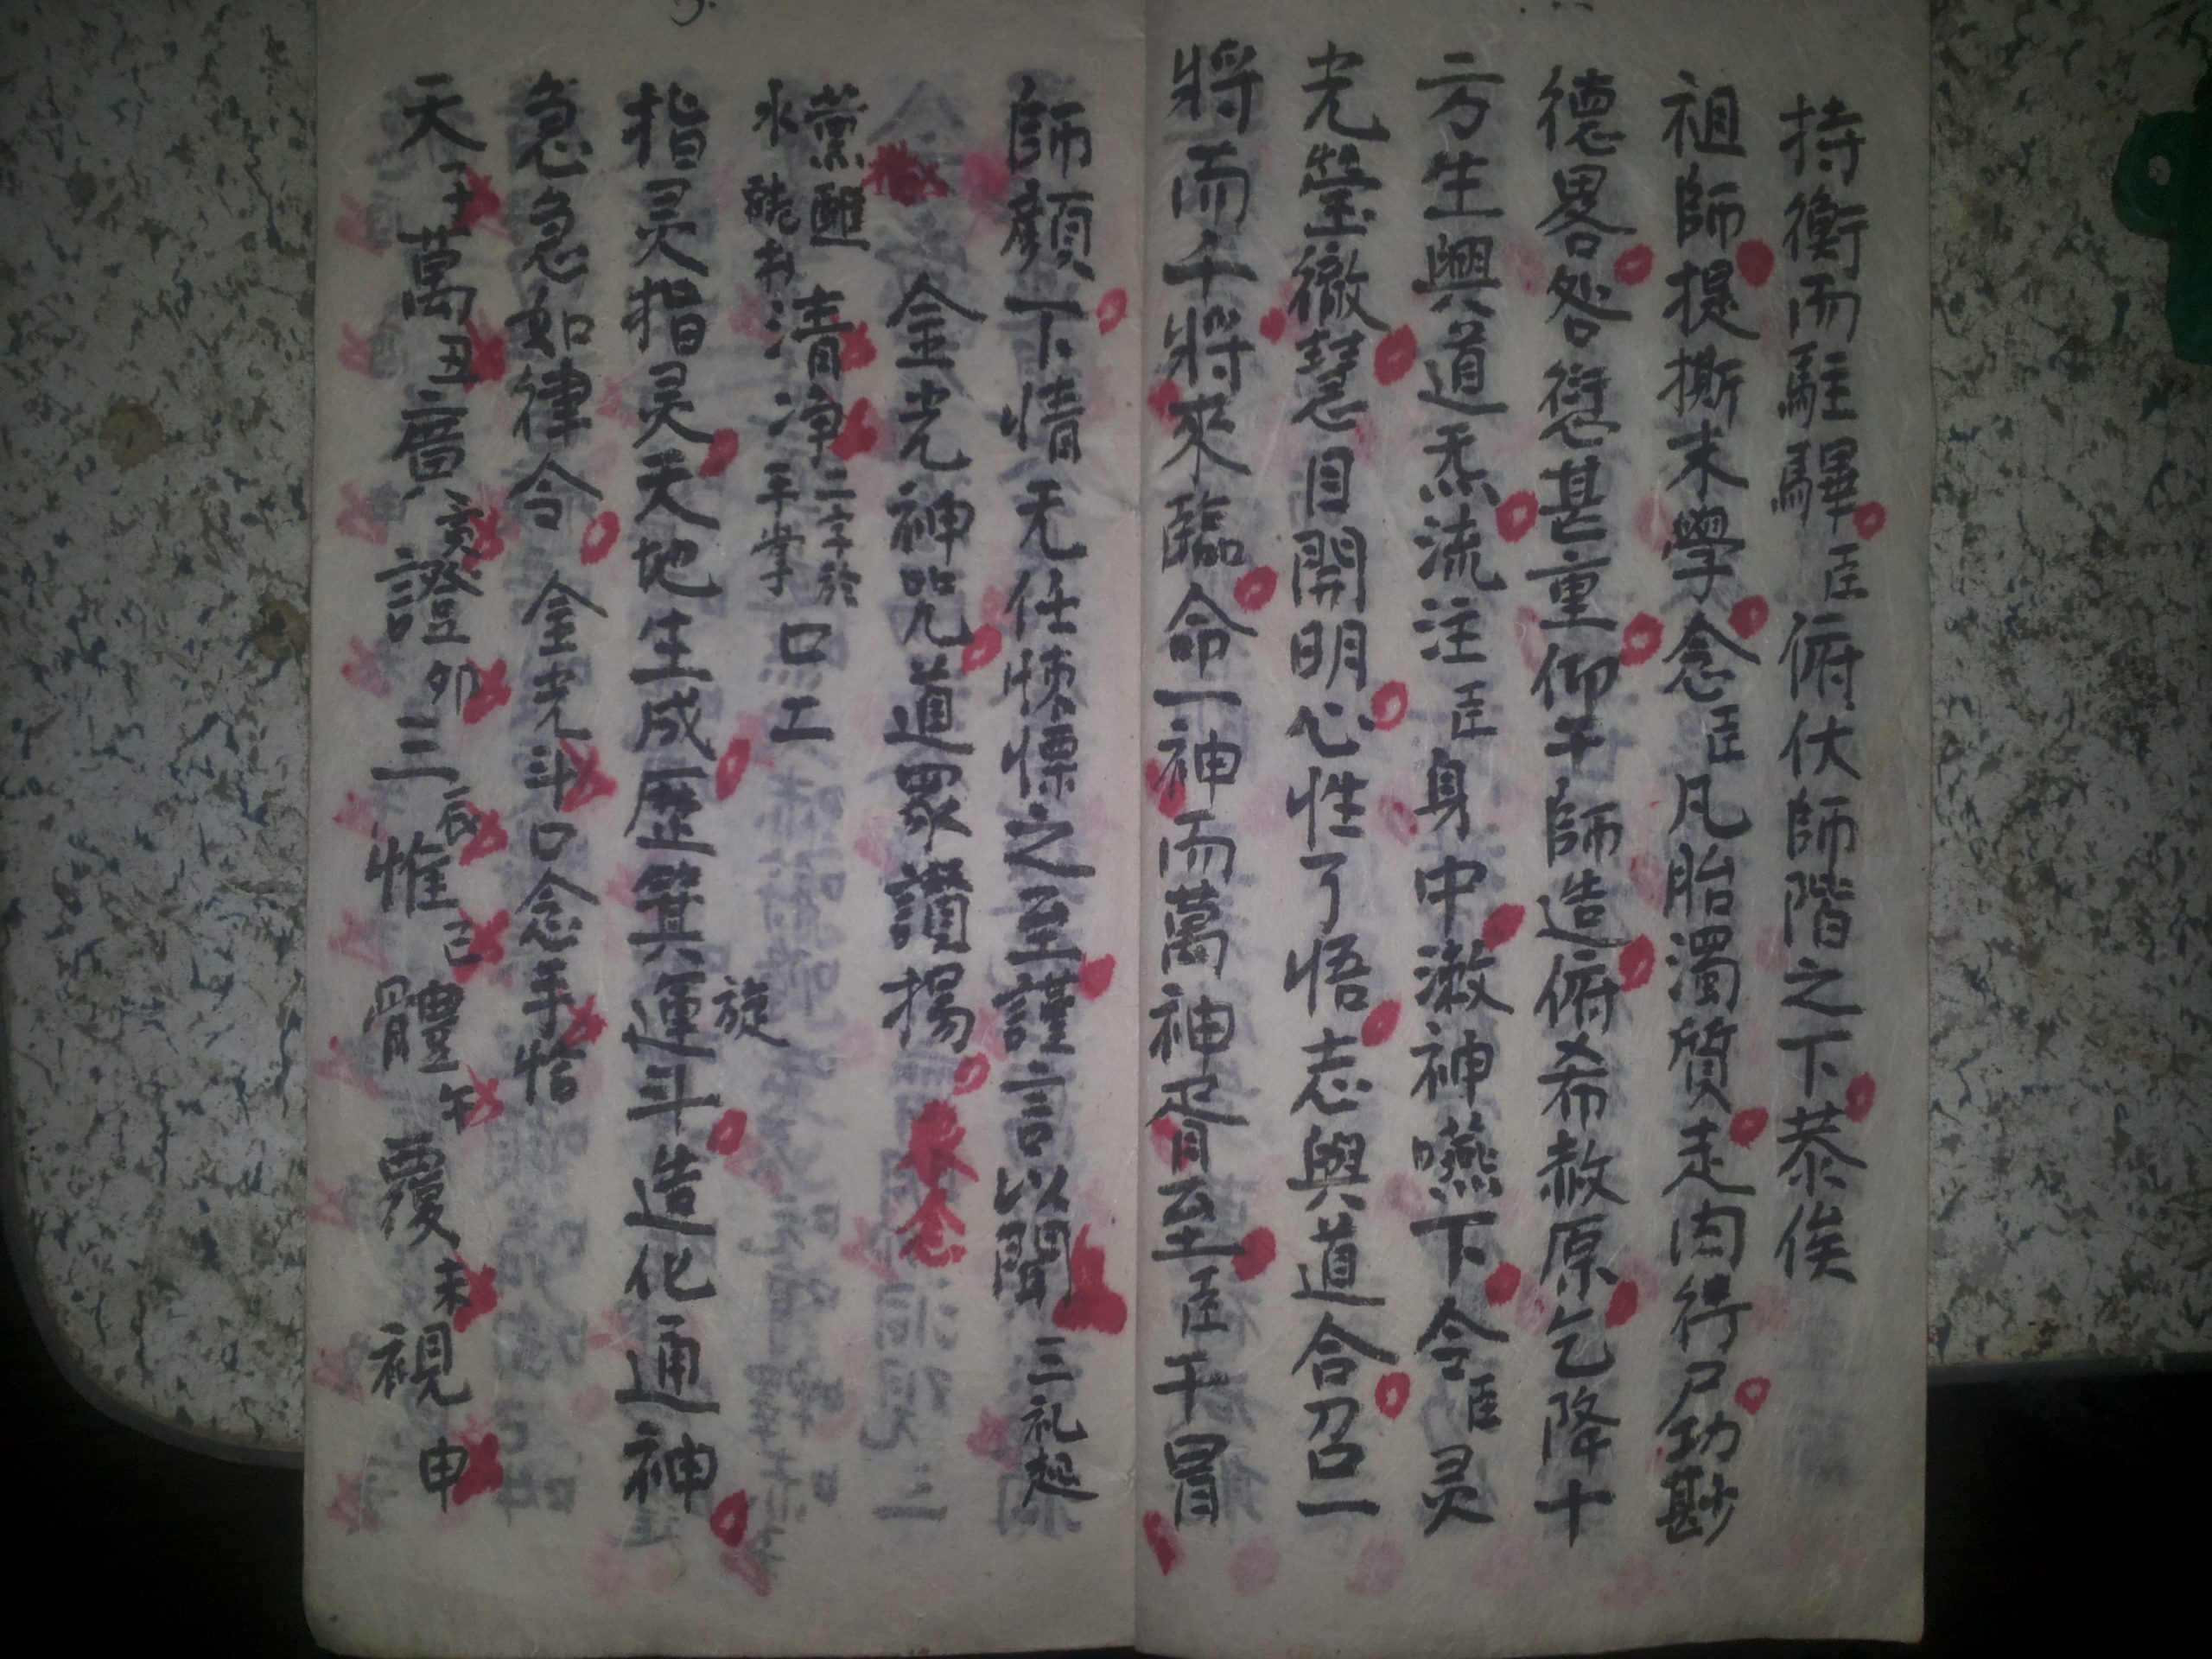 持衡而駐驆臣俯伏師階之下恭俟
祖師提撕末學念臣凡胎濁質走肉行尸功尠
德畧咎愆甚重仰干師造俯希赦原乞降十
方生興道炁流注臣身中漱神嚥下令臣灵
光瑩徹慧目開明心性了悟志與道合召一
將而千將來臨命一神而萬神疋目至臣干冒
師顏下情无任悚慄之至謹言以聞三礼起
金光神咒道眾讚揚 衆念
清净二字於手掌口工
指灵指灵天地生成歷箕運斗造化通神
旋
急急如律令金光斗口念手恰
天子萬丑廣寅證卯三辰惟巳體午覆未視申